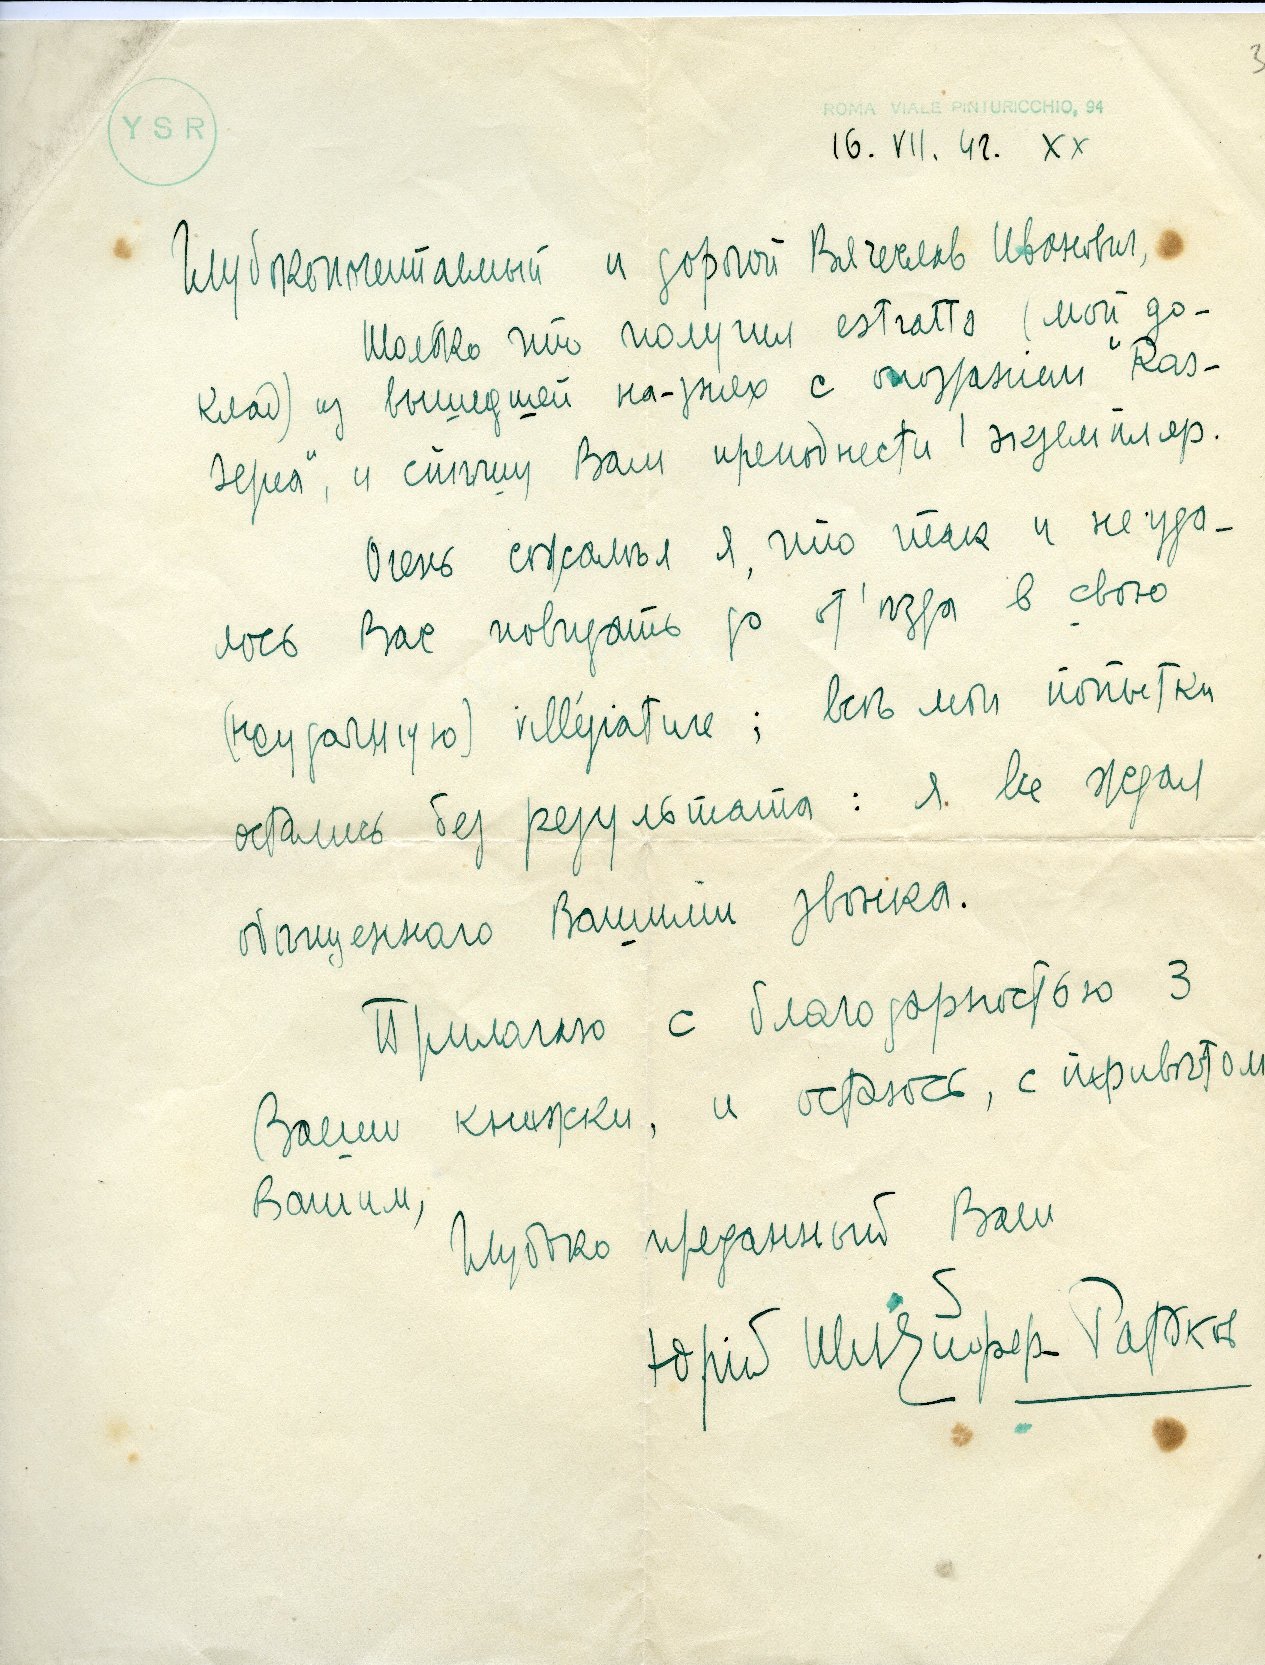 3
YSR
ROMA VIALE PINTURICCHIO, 94
16. VII. 42. XX
Глубокопочитаемый и дорогой Вячеслав Иванович,
Только что получил estratto (мой до-
клад) из вышедшей на-днях с опозданіем "Ras-
segna", и спѣшу Вам преподнести 1 экземпляр.
Очень сожалѣл я, что так и не уда-
лось Вас повидать до от'ѣзда в свою
(неудачную) villégiature; всѣ мои попытки
остались без результата: я все ждал
обѣщеннаго Вашими звонка.
Прилагаю с благодарностью 3
Ваши книжки, и остаюсь, с привѣтом
Вашим,
Глубоко преданный Ваш
Юрій